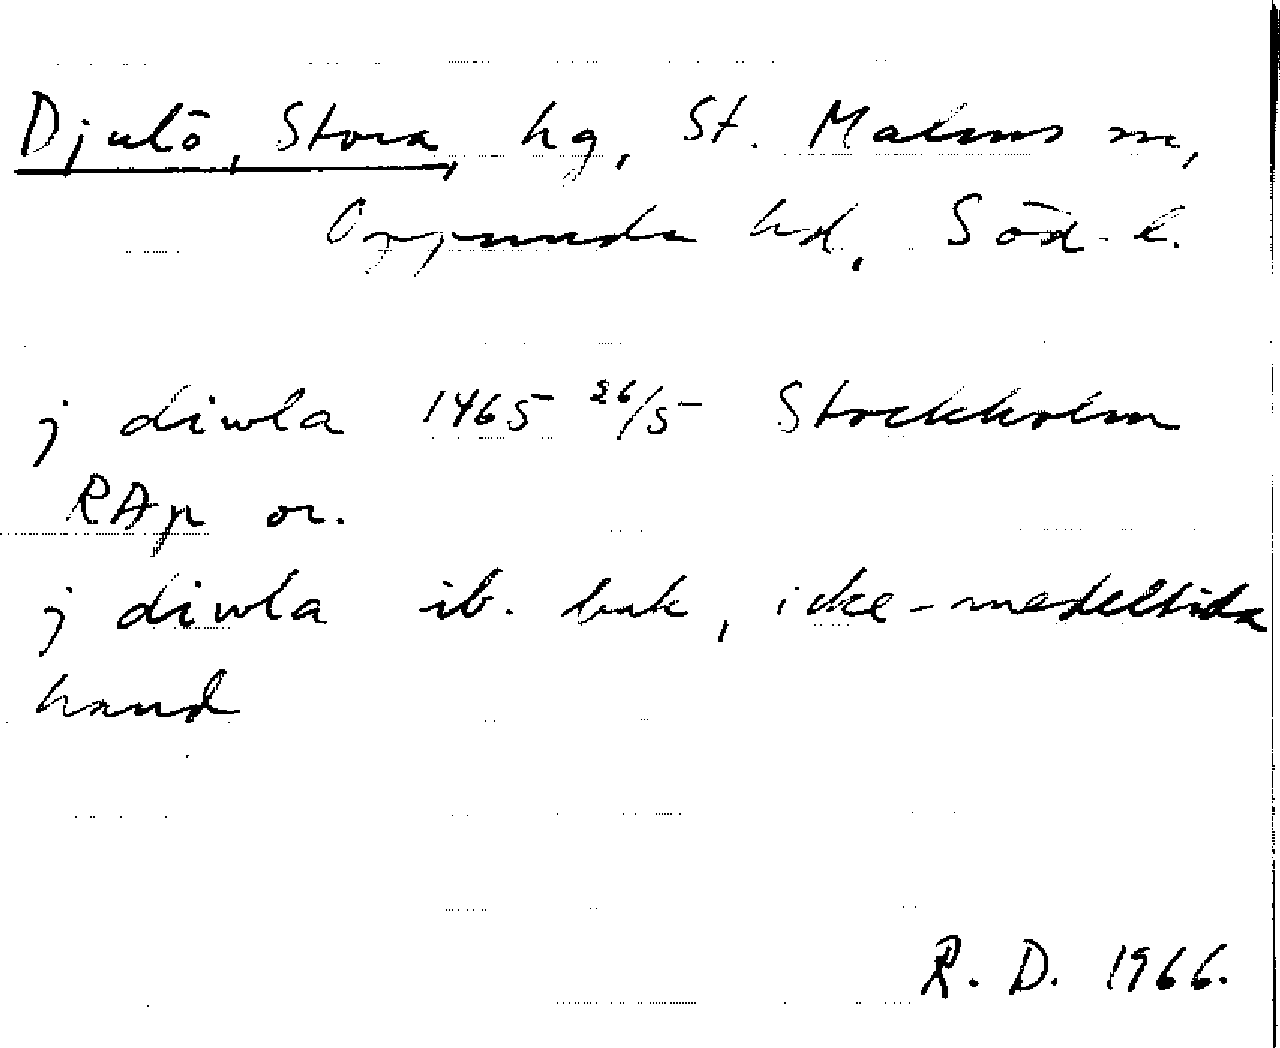 Djulö, Stora, hg, St. Malms sn,
Oppunda hd, Söd. l.
j diwla 1465 26/5 Stockholm
RAp or.
j diwla ib. bak, icke-medeltida
hand
R. D. 1966.